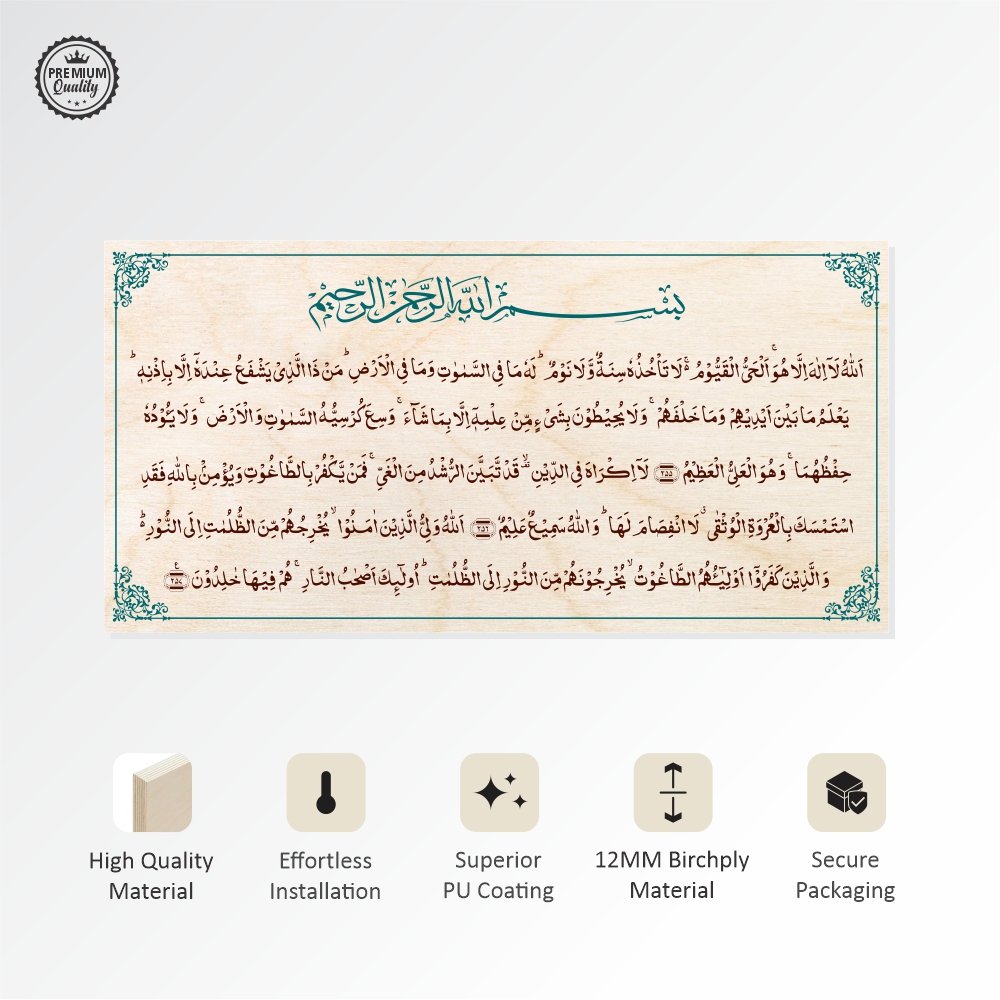 PREMIUM
Quality
بِسْمِ اللهِ الرَّحْمٰنِ الرَّحِيْمِ
اَللّٰهُ لَاۤ اِلٰهَ اِلَّا هُوَ ۚ اَلْحَیُّ الْقَیُّوْمُ ۚ۬ لَا تَاْخُذُهٗ سِنَةٌ وَّلَا نَوْمٌ ؕ لَهٗ مَا فِی السَّمٰوٰتِ وَمَا فِی الْاَرْضِ ؕ مَنْ ذَا الَّذِیْ یَشْفَعُ عِنْدَهٗۤ اِلَّا بِاِذْنِهٖ ؕ
یَعْلَمُ مَا بَیْنَ اَیْدِیْهِمْ وَمَا خَلْفَهُمْ ۚ وَلَا یُحِیْطُوْنَ بِشَیْءٍ مِّنْ عِلْمِهٖۤ اِلَّا بِمَا شَآءَ ۚ وَسِعَ كُرْسِیُّهُ السَّمٰوٰتِ وَالْاَرْضَ ۚ وَلَا یَـُٔوْدُهٗ
حِفْظُهُمَا ۚ وَهُوَ الْعَلِیُّ الْعَظِیْمُ ﴿۲۵۵﴾ لَاۤ اِكْرَاهَ فِی الدِّیْنِ ۙ۫ قَدْ تَّبَیَّنَ الرُّشْدُ مِنَ الْغَیِّ ۚ فَمَنْ یَّكْفُرْ بِالطَّاغُوْتِ وَیُؤْمِنْۢ بِاللّٰهِ فَقَدِ
اسْتَمْسَكَ بِالْعُرْوَةِ الْوُثْقٰی ۗ لَا انْفِصَامَ لَهَا ؕ وَاللّٰهُ سَمِیْعٌ عَلِیْمٌ ﴿۲۵۶﴾ اَللّٰهُ وَلِیُّ الَّذِیْنَ اٰمَنُوْا ۙ یُخْرِجُهُمْ مِّنَ الظُّلُمٰتِ اِلَی النُّوْرِ ؕ۬
وَالَّذِیْنَ كَفَرُوْۤا اَوْلِیٰٓـُٔهُمُ الطَّاغُوْتُ ۙ یُخْرِجُوْنَهُمْ مِّنَ النُّوْرِ اِلَی الظُّلُمٰتِ ؕ اُولٰٓىِٕكَ اَصْحٰبُ النَّارِ ۚ هُمْ فِیْهَا خٰلِدُوْنَ ﴿۲۵۷﴾
High Quality
Material
Effortless
Installation
Superior
PU Coating
12MM Birchply
Material
Secure
Packaging